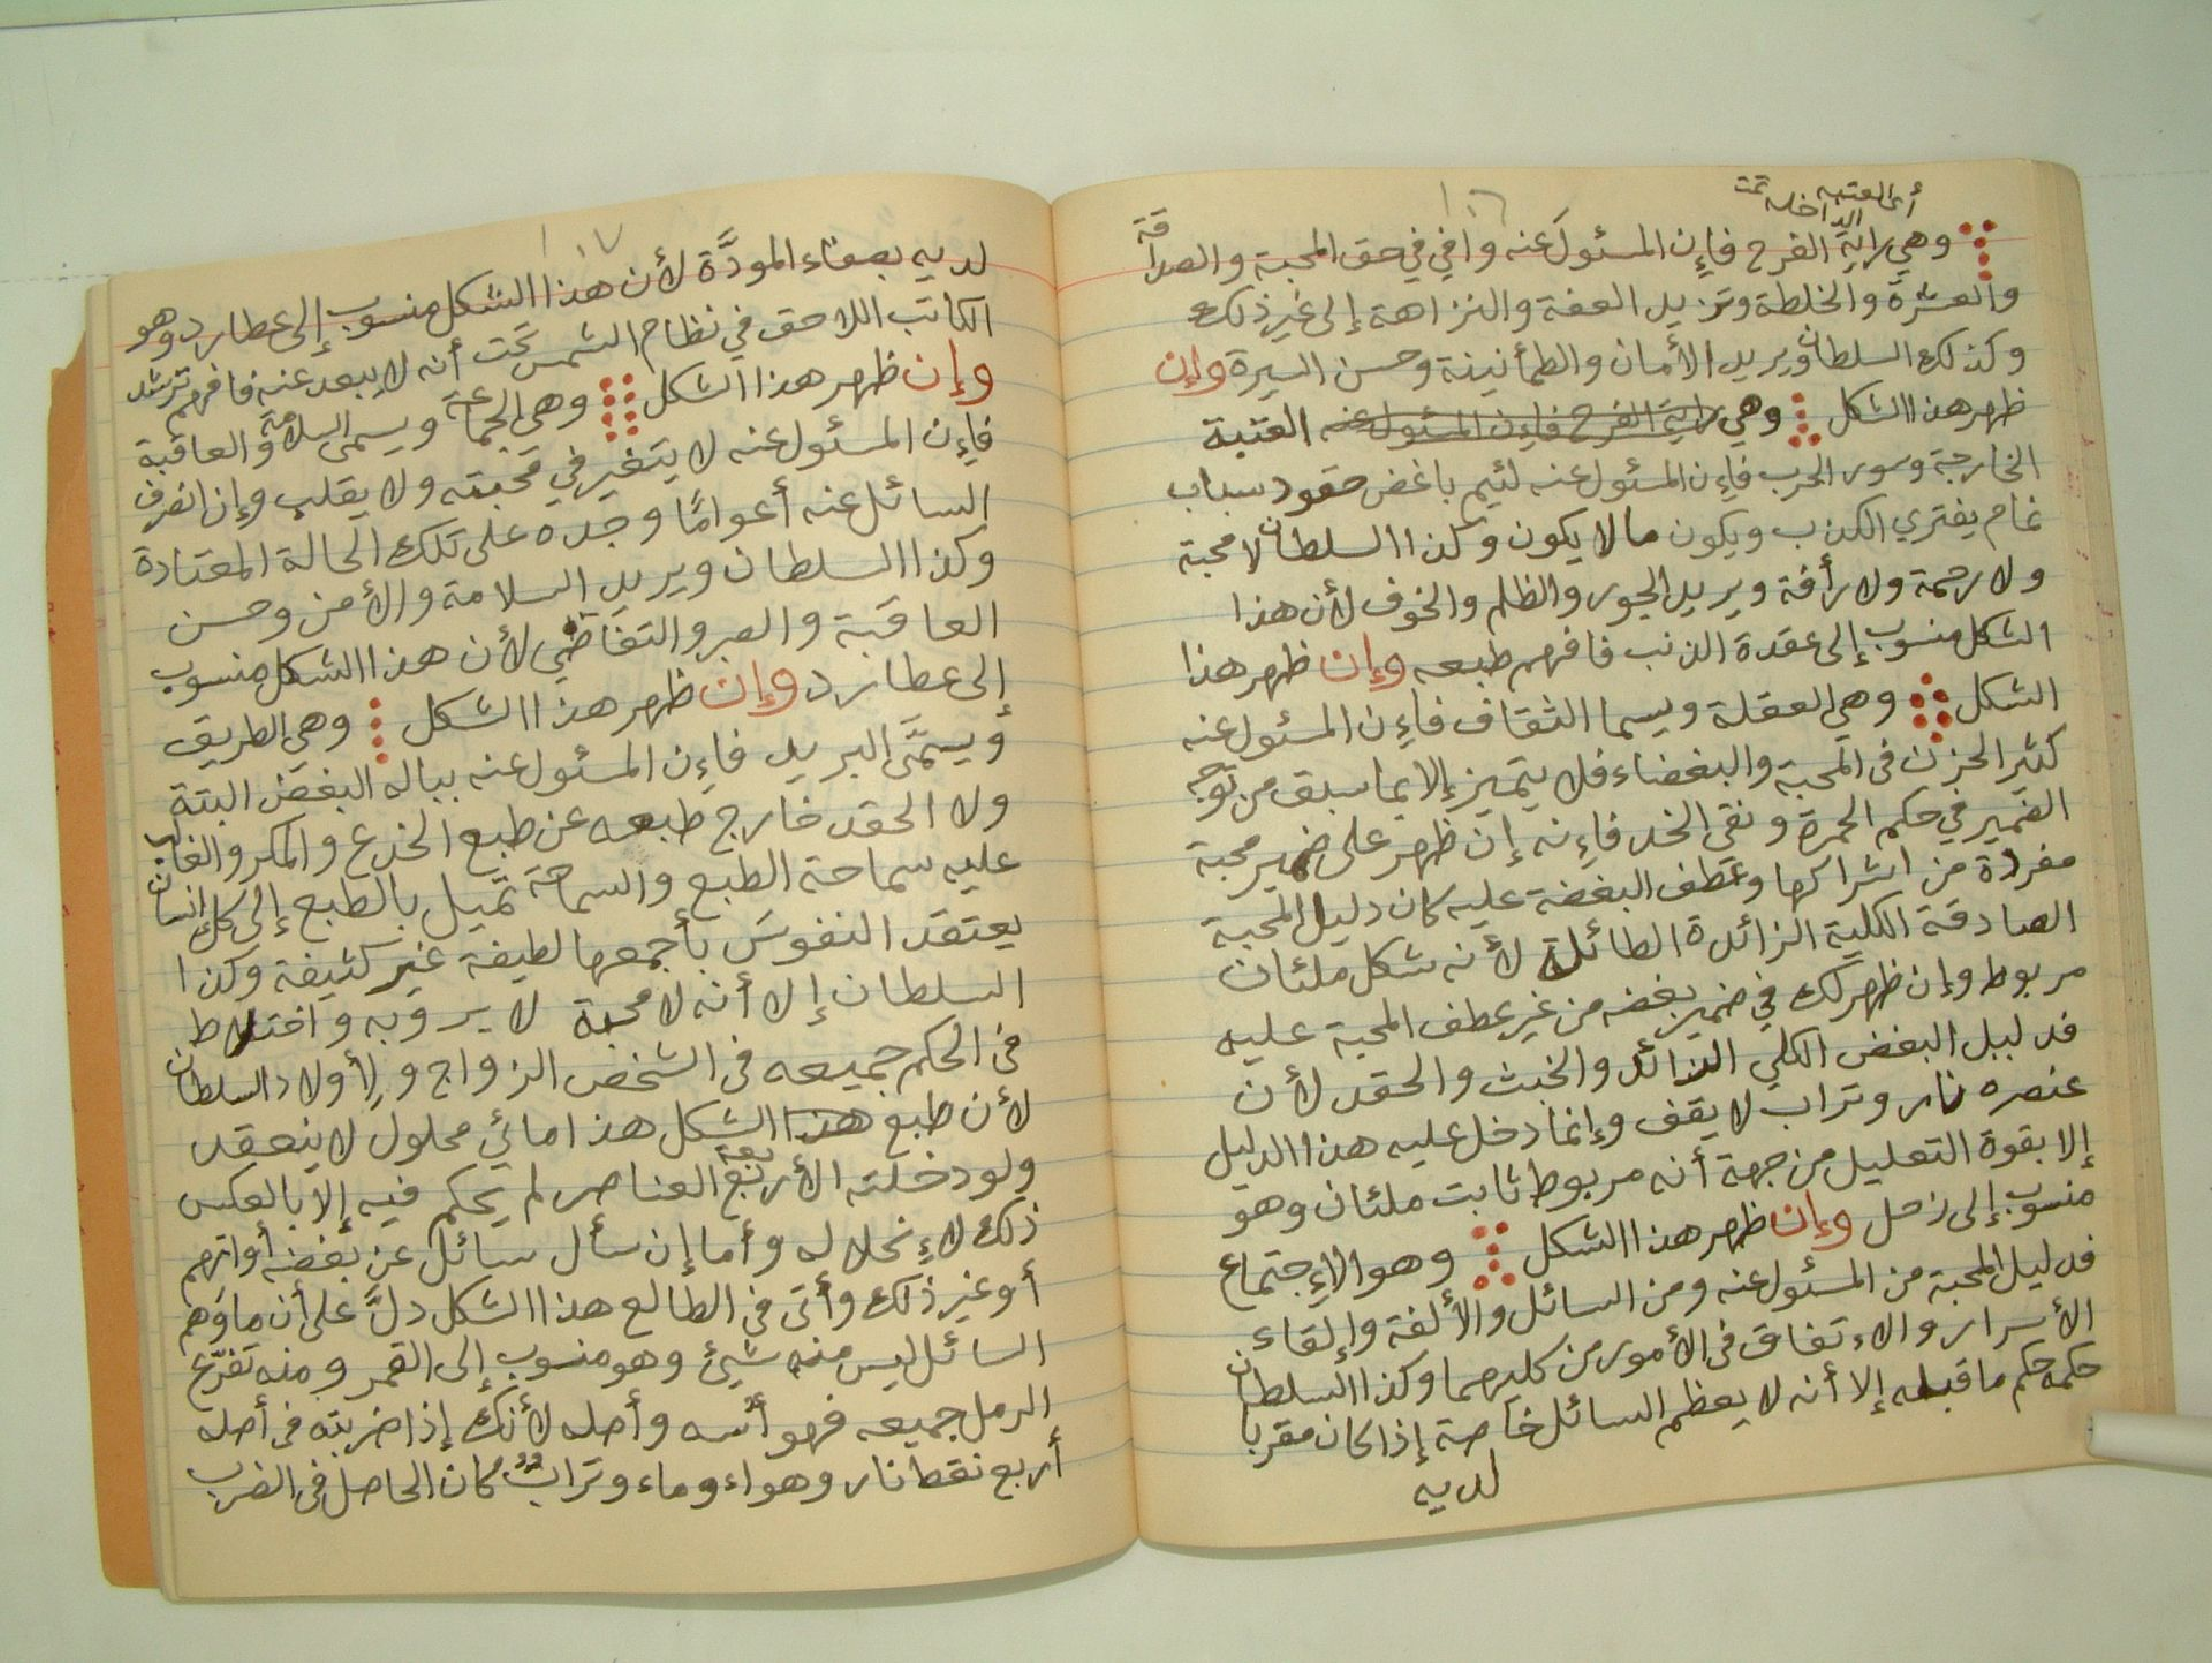 ١٠٦
أي العتبه
الداخله تمت
وهي راية الفرح فإن المسئول عنه وافي في حق المحبة والصداقة
والعشرة والخلطة وتزيد العفة والنزاهة إلى غير ذلك
وكذلك السلطان ويريد الأمان والطمأنينة وحسن السيرة وإن
ظهر هذا الشكل وهي راية الفرح فإن المسئول عنه العتبة
الخارجة وسور الحرب فإن المسئول عنه لئيم باغض حقود سباب
نمام يفتري الكذب ويكون ما لا يكون وكذا السلطان لا محبة
ولا رحمة ولا رأفة ويريد الجور والظلم والخوف لأن هذا
الشكل منسوب إلى عقدة الذنب فافهم طبعه وإن ظهر هذا
الشكل وهي العقلة ويسما الثقاف فإن المسئول عنه
كثير الحزن في المحبة والبغضاء فلا يتميز إلا بما سبق من توجه
الضمير في حكم الحمرة ونقي الخد فإنه إن ظهر على ضمير محبة
مفردة من اشراكها وعطف البغضة عليه كان دليل المحبة
الصادقة الكلية الزائدة الطائلة لأنه شكل ملئان
مربوط وإن ظهر لك في ضمير بغضه من غير عطف المحبة عليه
فدليل البغض الكلي الزائد والخبث والحقد لأن
عنصره نار وتراب لا يقف وإنما دخل عليه هذا الدليل
إلا بقوة التعليل من جهة أنه مربوط ثابت ملئان وهو
منسوب إلى زحل وإن ظهر هذا الشكل وهو الإجتماع
فدليل المحبة من المسئول عنه ومن السائل والألفة وإلقاء
الأسرار والاءتفاق في الأمور من كليهما وكذا السلطان
حكمه حكم ما قبله إلا أنه لا يعظم السائل خاصة إذا كان مقربا
لديه
١٠٧
لديه بصفاء المودَّة لأن هذا الشكل منسوب إلى عطارد وهو
الكاتب اللاحق في نظام الشمس تحت أنه لا يبعد عنه فافهم ترشد
وإن ظهر هذا الشكل وهي الجماعة ويسمى السلامة والعاقبة
فإن المسئول عنه لا يتغير في محبته ولا يقلب وإن انفرف
السائل عنه أعوامًا وجده على تلك الحالة المعتادة
وكذا السلطان ويريد السلامة والأمن وحسن
العاقبة والصبر والتغاضي لأن هذا الشكل منسوب
إلى عطارد وإن ظهر هذا الشكل وهي الطريق
ويسمَّى البريد فإن المسئول عنه بباله البغض البتة
ولا الحقد خارج طبعه عن طبع الخدع والمكر والغالب
عليه سماحة الطبع والسماحة تميل بالطبع إلى كل إنسان
يعتقد النفوس بأجمعها لطيفة غير كثيفة وكذا
السلطان إلا أنه لا محبة لا يروبه واختلاط
في الحكم جميعه في الشخص الزواج ولأولاد السلطان
لأن طبع هذا الشكل هذا مائي محلول لا ينعقد
ولو دخلته الأربعة العناصر لم يحكم فيه إلا بالعكس
ذلك لاءنحلاله وأما إن سأل سائل عن بغضه أو اتهم
أو غير ذلك وأتى في الطالع هذا الشكل دلَّ على أن ما وهم
السائل ليس منه شيئ وهو منسوب إلى القمر ومنه تفرّع
الرمل جميعه فهو أسه وأصله لأنك إذا ضربته في أصله
أربع نقط نار وهواء وماء وتراب كان الحاصل في الضرب